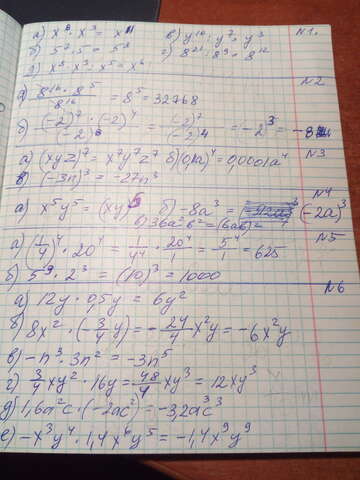 а) x⁸ · x³ = x¹¹ в) y¹⁰ : y⁷ = y³ N1.
б) 5⁷ · 5 = 5⁸ г) 8²¹ : 8⁹ = 8¹²
N2
а) (8¹⁶ · 8⁵)/8¹⁶ = 8⁵ = 32768
б) ((-2)⁷ · (-2)⁴)/(-2)⁸ = (-2)⁷/(-2)4 = (-2)³ = -8
а) (xyz)⁷ = x⁷y⁷z⁷ б) (0,1a)⁴ = 0,0001a⁴ N3
в) (-3n)³ = -27n³
N4
а) x⁵y⁵ = (xy)⁵ б) -8a³ = (-2a)³
в) 36a²b² = (6ab)²
N5
а) (1/4)⁴ · 20⁴ = 1/4⁴ · 20⁴/1 = 5⁴/1 = 625
б) 5³ · 2³ = (10)³ = 1000
N6
а) 12y · 0,5y = 6y²
б) 8x² · (-3/4 y) = -24/4 x²y = -6x²y
в) -n³ · 3n² = -3n⁵
г) 3/4 xy² · 16y = 48/4 xy³ = 12xy³
д) 1,6a²c · (-2ac²) = -3,2a³c³
е) -x³y⁴ · 1,4x⁶y⁵ = -1,4x⁹y⁹